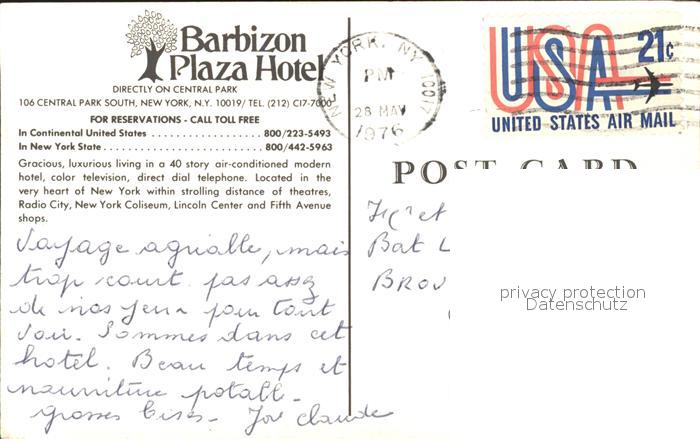 Barbizon
Plaza Hotel
DIRECTLY ON CENTRAL PARK
106 CENTRAL PARK SOUTH, NEW YORK, N.Y. 10019/ TEL. (212) CI7-7000
FOR RESERVATIONS - CALL TOLL FREE
In Continental United States . . . . . . . . . . . . . . . . . . 800/223-5493
In New York State . . . . . . . . . . . . . . . . . . . . . . . . . 800/442-5963
Gracious, luxurious living in a 40 story air-conditioned modern
hotel, color television, direct dial telephone. Located in the
very heart of New York within strolling distance of theatres,
Radio City, New York Coliseum, Lincoln Center and Fifth Avenue
shops.
Voyage agréable, mais
trop court. pas assez
de nos yeux pour tout
voir. Sommes dans cet
hotel. Beau temps et
nourriture potable.
Grosses bises - claude
NEW YORK, NY 10017
PM
28 MAY
1976
USA 21c
UNITED STATES AIR MAIL
POST CARD
et
Bat
privacy protection
Datenschutz